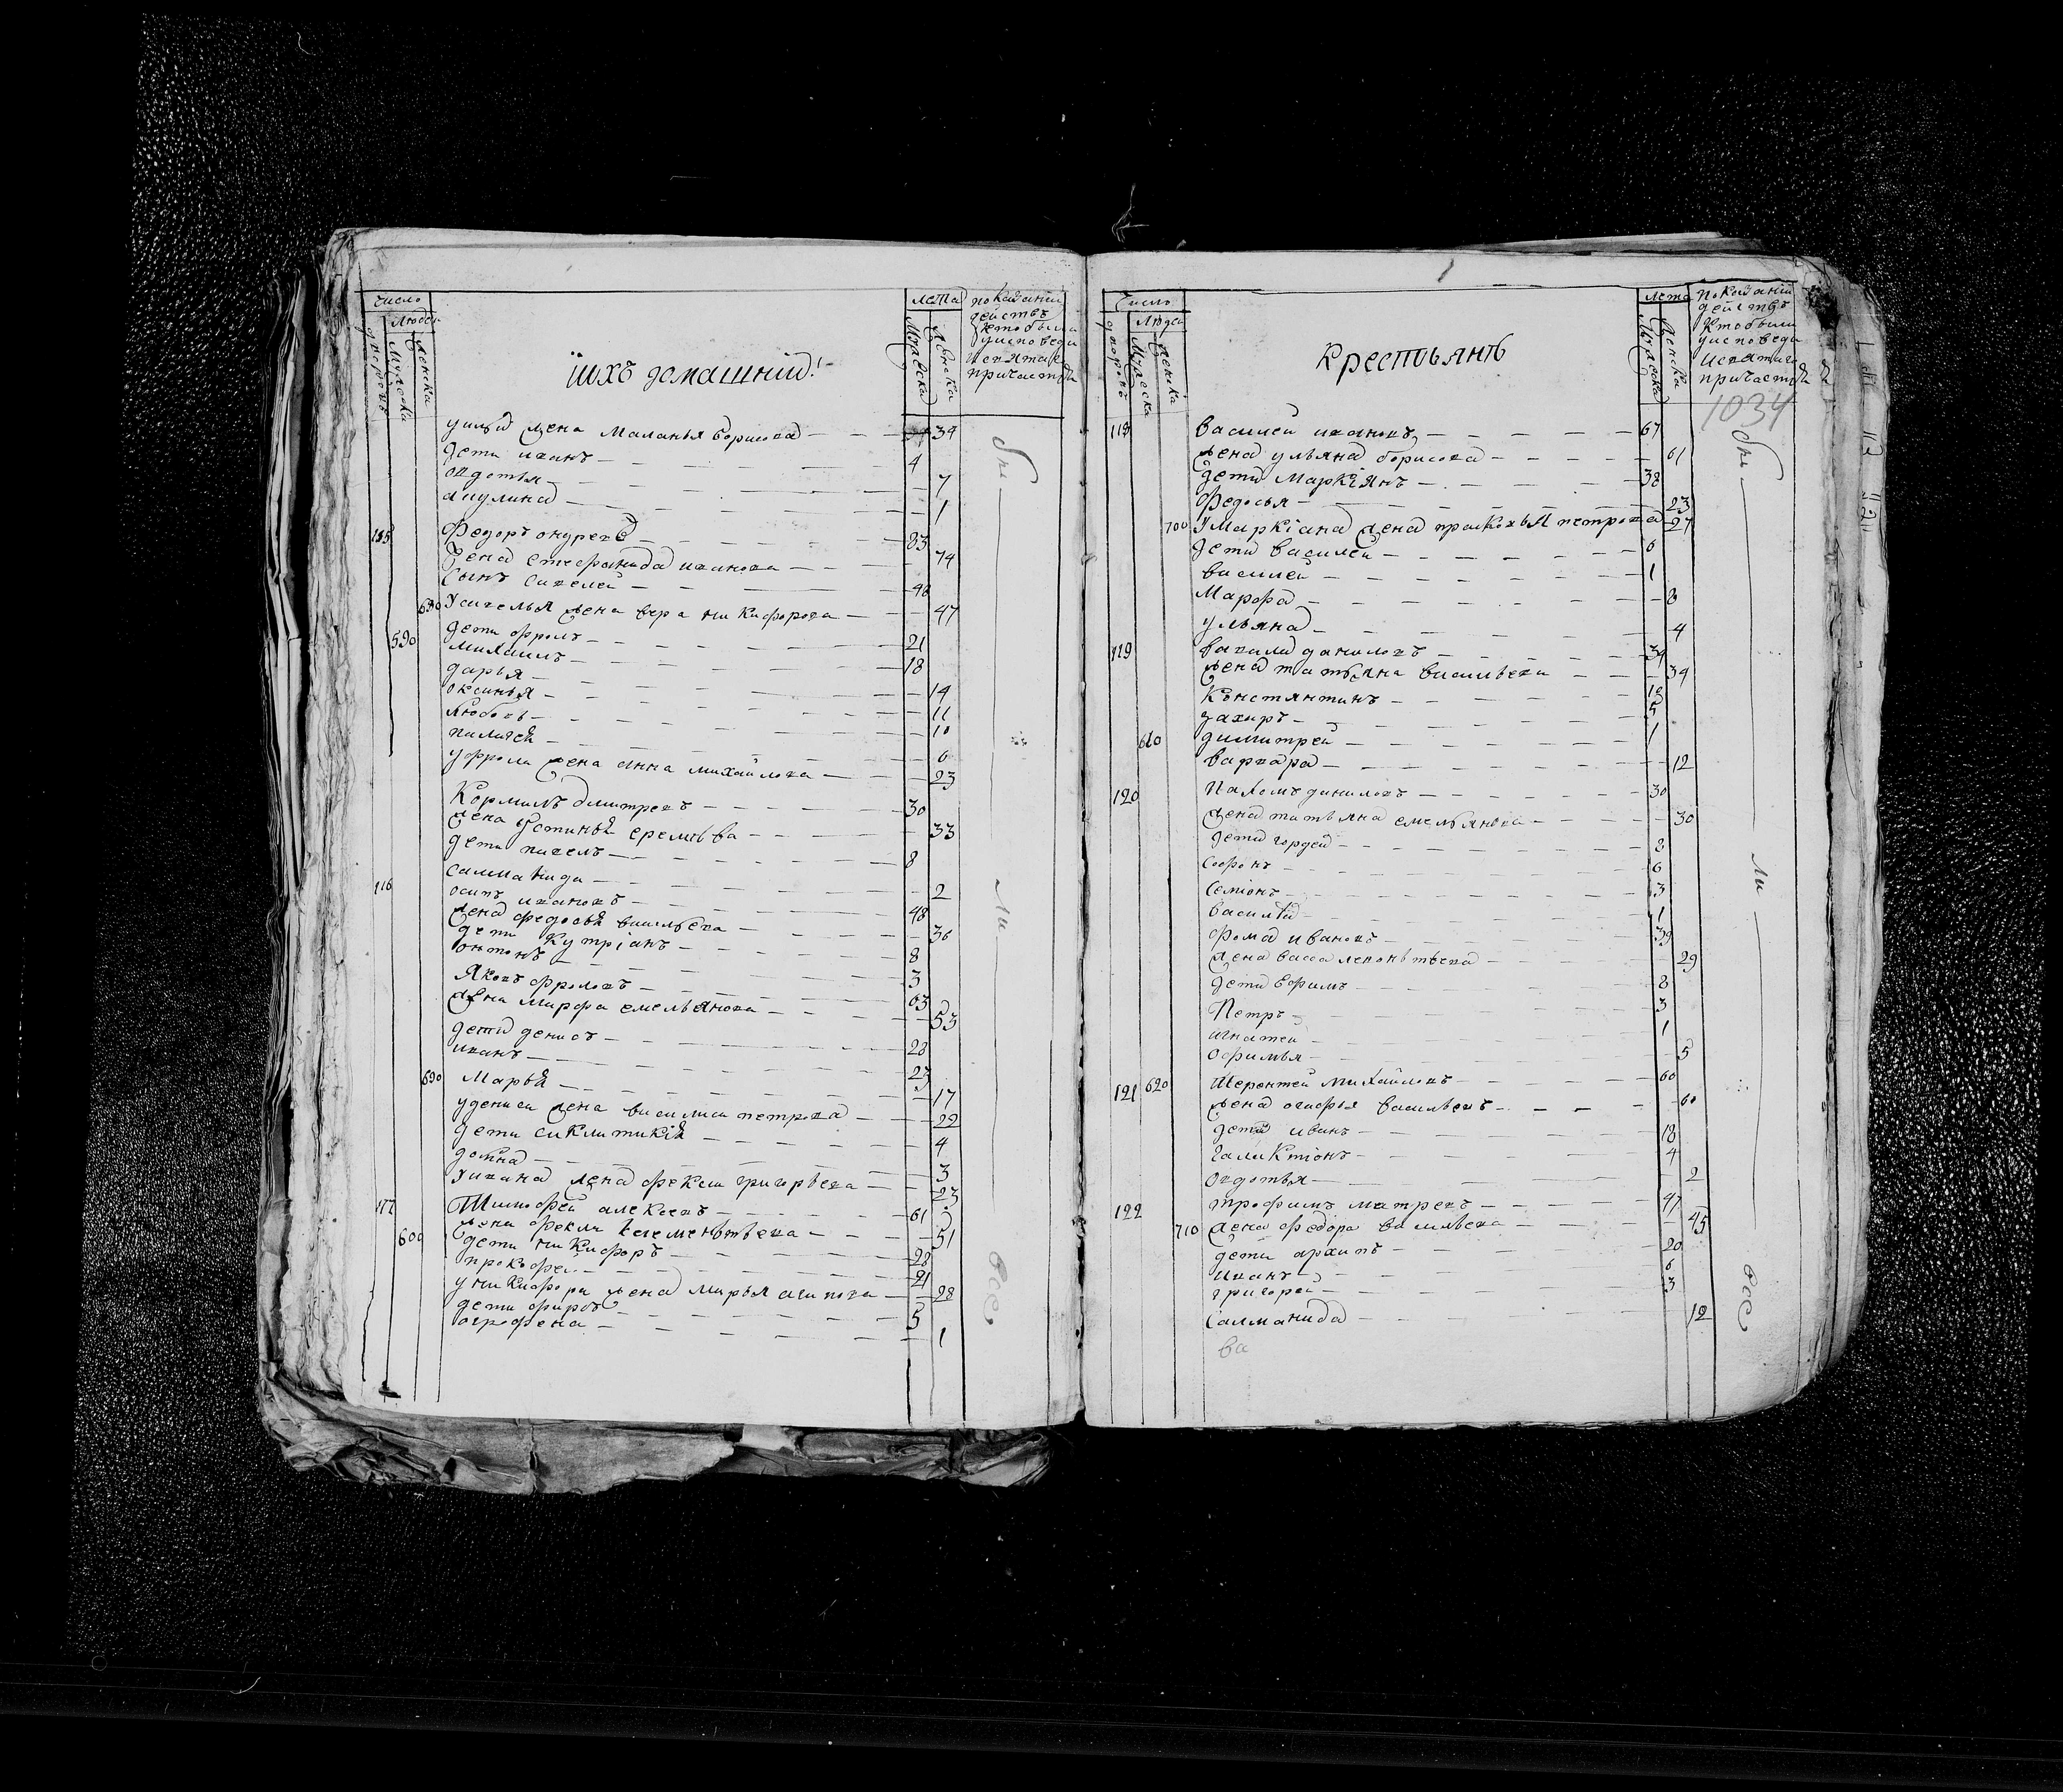 число
людей
дворовъ
мужеска
женска
їихъ домашнїи
лета
мужеска
женска
показание действъ кто были у исповеди и святаго причастия
жена маланья борисова 34
дети иванъ 4
овдотья 7
акулина 1
115 Федоръ ондреевъ 83
жена стефанида иванова 74
сынъ савелей 48
680 у савелья жена вера никифорова 47
590 дети фролъ 21
михаилъ 18
дарья 14
оксинья 11
любовь 10
пелагея 6
у фрола жена анна михайлова 23
Кормилъ дмитревъ 30
жена устинья еремѣева 33
дети павелъ 8
саламанида 2
116 осипъ ивановъ 48
жена федосья васильева 36
дети кутрїанъ 8
онтонъ 3
Яковъ фроловъ 63
жена марфа емельянова 53
дети денисъ 28
иванъ 23
690 Марья 17
у дениса жена василиса петрова 22
дети сиклитикїя 4
домна 3
У ивана жена фекла григорьева 23
117 Тимофей алексевъ 61
жена фекла клементьева 51
600 дети никифоръ 28
прокофей 21
у никифора жена марья осипова 28
дети фирсъ 5
огрофена 1
бы ли все
число
людей
дворовъ
мужеска
женска
крестьянъ
лета
мужеска
женска
показании действъ кто были у исповеди и святаго причастия
1034
118 василей ивановъ 67
жена ульяна борисова 61
дети Маркїянъ 38
Федосья 23
700 У Маркїана жена прасковья петрова 27
дети василей 6
василей 1
Марфа 8
ульяна 4
119 вавила даниловъ 34
жена татьяна васильева 34
Констянтинъ 10
захаръ 5
610 димитрей 1
варвара 12
120 Пахомъ даниловъ 30
жена татьяна емельянова 30
дети гордей 8
софонъ 6
семїонъ 3
василей 1
фома ивановъ 39
жена васса леонтьева 29
дети ефимъ 8
Петръ 3
игнатей 1
офимья 5
121 620 Терентей михайловъ 60
жена огафья васильевъ 60
дети иванъ 18
галактїонъ 4
овдотья 2
122 трофимъ матревъ 47
710 жена федора васильева 45
дети архипъ 20
иванъ 6
григорей 3
Салманида 12
ва
бы ли все